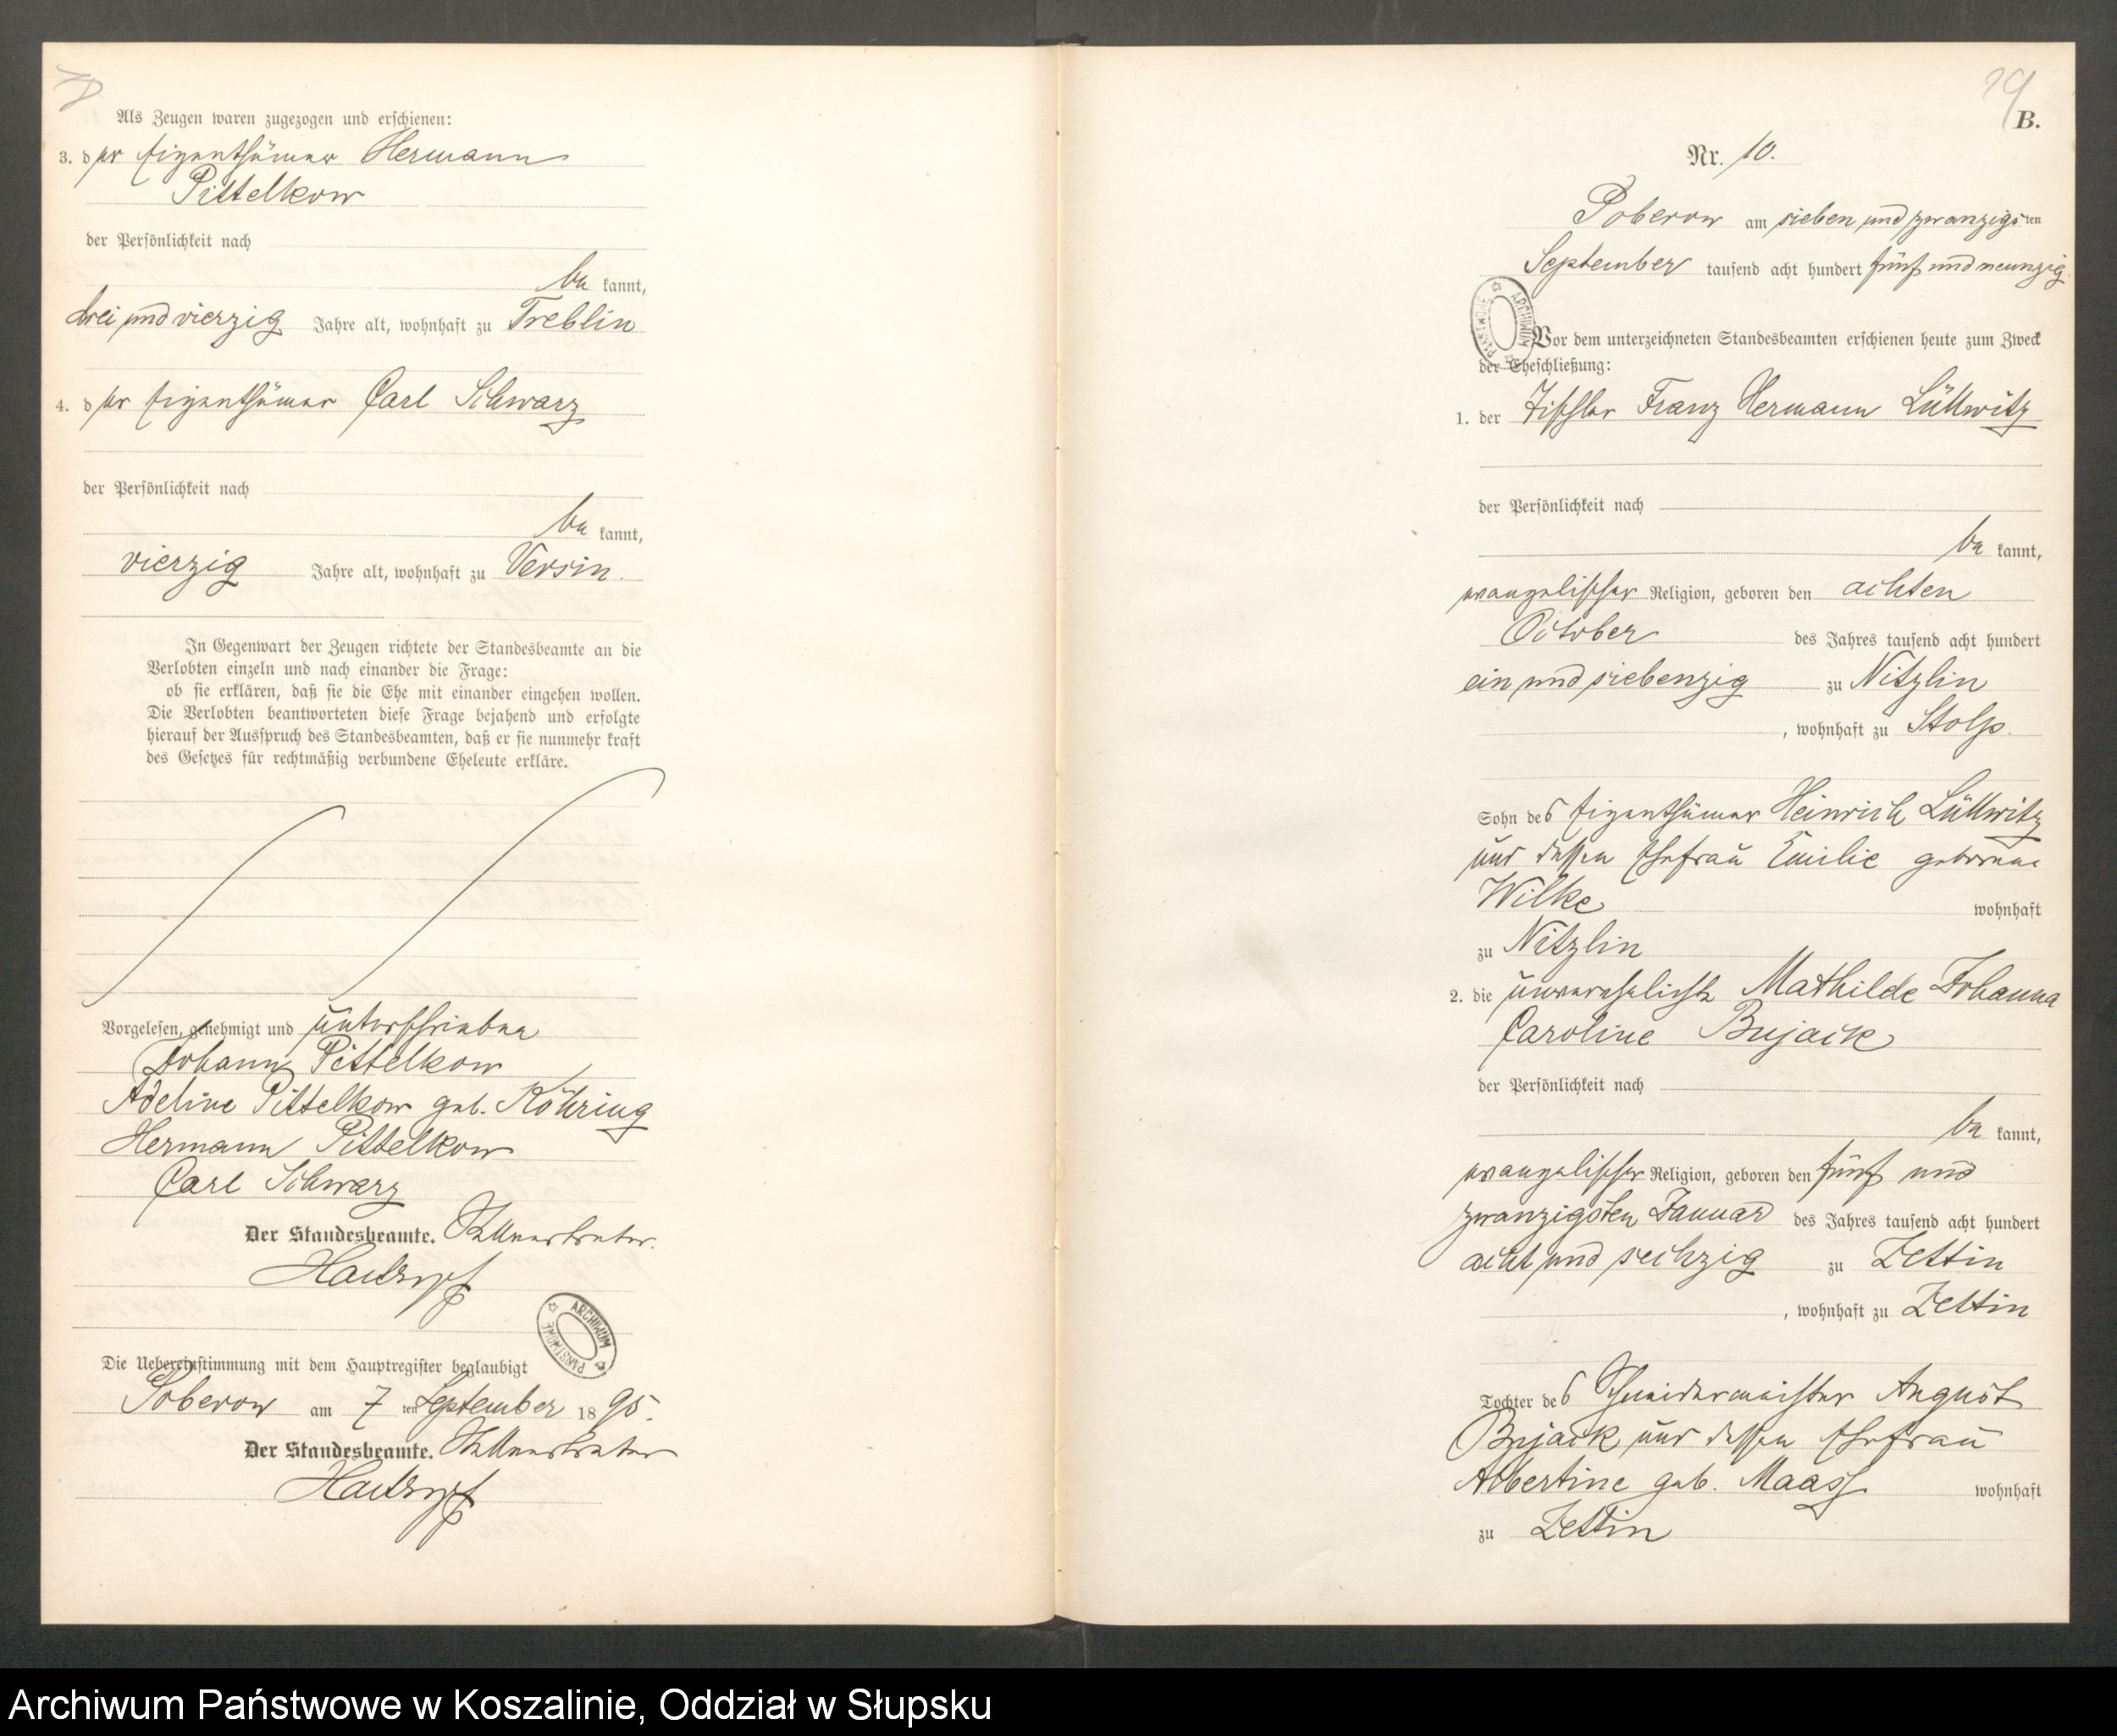 Als Zeugen waren zugezogen und erschienen:
3. der Eigenthümer Hermann
Pittelkow
der Persönlichkeit nach
be kannt,
drei und vierzig Jahre alt, wohnhaft zu Treblin
4. der Eigenthümer Carl Schwarz
der Persönlichkeit nach
be kannt,
vierzig Jahre alt, wohnhaft zu Versin.
In Gegenwart der Zeugen richtete der Standesbeamte an die
Verlobten einzeln und nach einander die Frage:
ob sie erklären, daß sie die Ehe mit einander eingehen wollen.
Die Verlobten beantworteten diese Frage bejahend und erfolgte
hierauf der Ausspruch des Standesbeamten, daß er sie nunmehr kraft
des Gesetzes für rechtmäßig verbundene Eheleute erkläre.
Vorgelesen, genehmigt und unterschrieben
Johann Pittelkow
Adeline Pittelkow geb. Köhring
Hermann Pittelkow
Carl Schwarz
Der Standesbeamte. Stellvertreter.
ARCHIWUM PAŃSTWOWE
Die Uebereinstimmung mit dem Hauptregister beglaubigt
Poberow am 7 ten September 18 95.
Der Standesbeamte. Stellvertreter
29
B.
Nr. 10.
Poberow am sieben und zwanzigsten
September tausend acht hundert fünf und neunzig
ARCHIWUM PAŃSTWOWE
Vor dem unterzeichneten Standesbeamten erschienen heute zum Zweck
der Eheschließung:
1. der Tischler Franz Hermann Lüllwitz
der Persönlichkeit nach
be kannt,
evangelischer Religion, geboren den achten
October des Jahres tausend acht hundert
ein und siebenzig zu Nitzlin
, wohnhaft zu Stolp.
Sohn des Eigenthümer Heinrich Lüllwitz
und dessen Ehefrau Emilie geborene
Wilke wohnhaft
zu Nitzlin
2. die unverehelichte Mathilde Johanna
Caroline Bujack
der Persönlichkeit nach
be kannt,
evangelischer Religion, geboren den fünf und
zwanzigsten Januar des Jahres tausend acht hundert
acht und sechzig zu Zettin
, wohnhaft zu Zettin
Tochter des Schneidermeister August
Bujack und dessen Ehefrau
Albertine geb. Maass wohnhaft
zu Zettin
Archiwum Państwowe w Koszalinie, Oddział w Słupsku